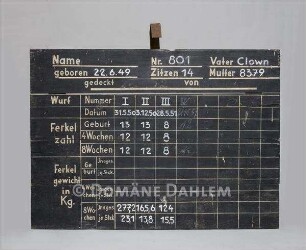 Name Nr. 801 Vater Clown
geboren 22.6.49 Zitzen 14 Mutter 8379
gedeckt von
Wurf Nummer I II III
Datum 31.5.50 3.12.50 28.5.51
Ferkel zahl Geburt 13 13 8
4 Wochen 12 12 8
8 Wochen 12 12 8
Ferkel gewicht in Kg.
Geburt Insges. je Stck.
Wochen Insges. je Stck.
8 Wochen Insges. 277,2 165,6 124
je Stck. 23,1 13,8 15,5
© DOMÄNE DAHLEM